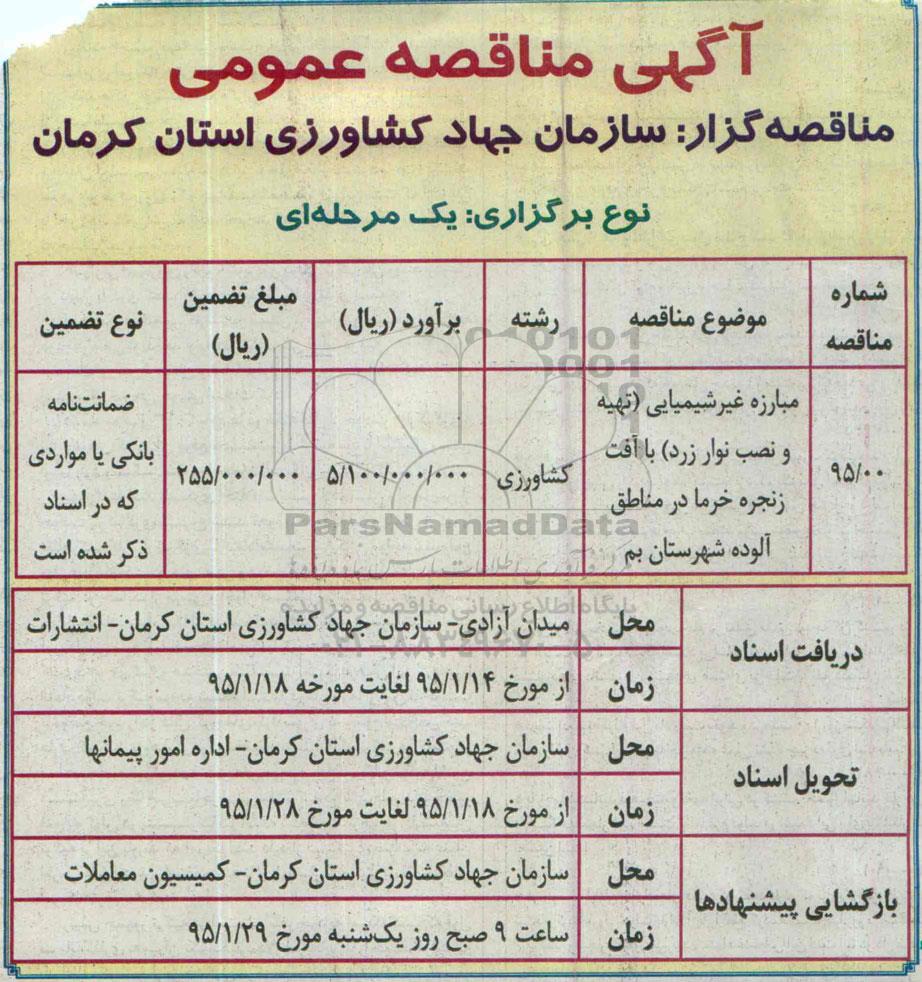 آگهی مناقصه عمومی
مناقصه‌گزار: سازمان جهاد کشاورزی استان کرمان
نوع برگزاری: یک مرحله‌ای
شماره مناقصه
موضوع مناقصه
رشته
برآورد (ریال)
مبلغ تضمین (ریال)
نوع تضمین
۹۵/۰۰
مبارزه غیرشیمیایی (تهیه
و نصب نوار زرد) با آفت
زنجره خرما در مناطق
آلوده شهرستان بم
کشاورزی
۵/۱۰۰/۰۰۰/۰۰۰
۲۵۵/۰۰۰/۰۰۰
ضمانت‌نامه
بانکی یا مواردی
که در اسناد
ذکر شده است
ParsNamadData
پایگاه اطلاع رسانی مناقصه و مزایده
دریافت اسناد
محل
میدان آزادی- سازمان جهاد کشاورزی استان کرمان- انتشارات
زمان
از مورخ ۹۵/۱/۱۴ لغایت مورخه ۹۵/۱/۱۸
تحویل اسناد
محل
سازمان جهاد کشاورزی استان کرمان- اداره امور پیمانها
زمان
از مورخ ۹۵/۱/۱۸ لغایت مورخ ۹۵/۱/۲۸
بازگشایی پیشنهادها
محل
سازمان جهاد کشاورزی استان کرمان- کمیسیون معاملات
زمان
ساعت ۹ صبح روز یک‌شنبه مورخ ۹۵/۱/۲۹